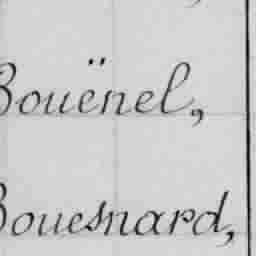 Bouënel,
Bouesnard,